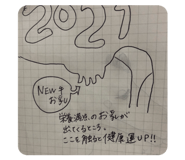 2021
NEW牛
お乳
栄養満点のお乳が
出てくるところ。
ここを触ると健康運UP!!